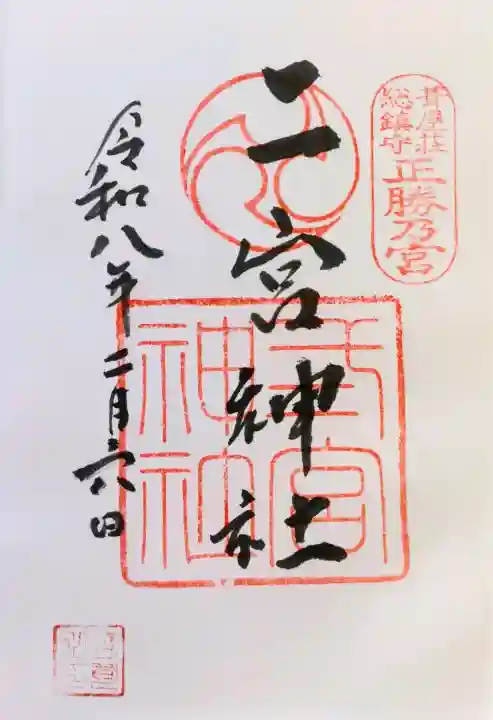 葺屋荘
総鎮守
正勝乃宮
二宮神社
令和八年二月六日